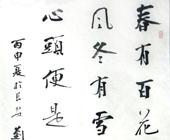 春有百花
风冬有雪
心頭便是
丙申夏於長安劉